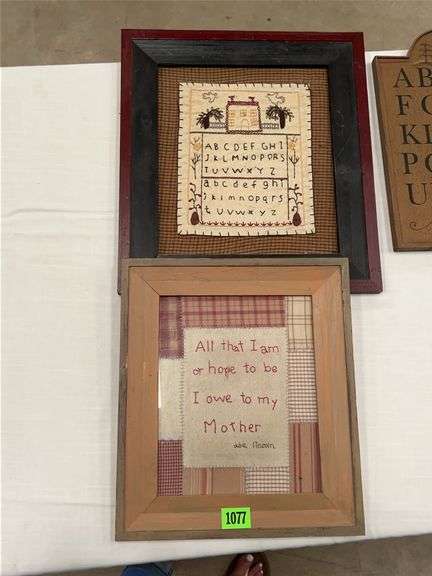 A B C D E F G H I
J K L M N O P Q R S
T U V W X Y Z
a b c d e f g h i
j k l m n o p q r s
t u v w x y z
A B
F G
K L
P Q
U
All that I am
or hope to be
I owe to my
Mother
1077